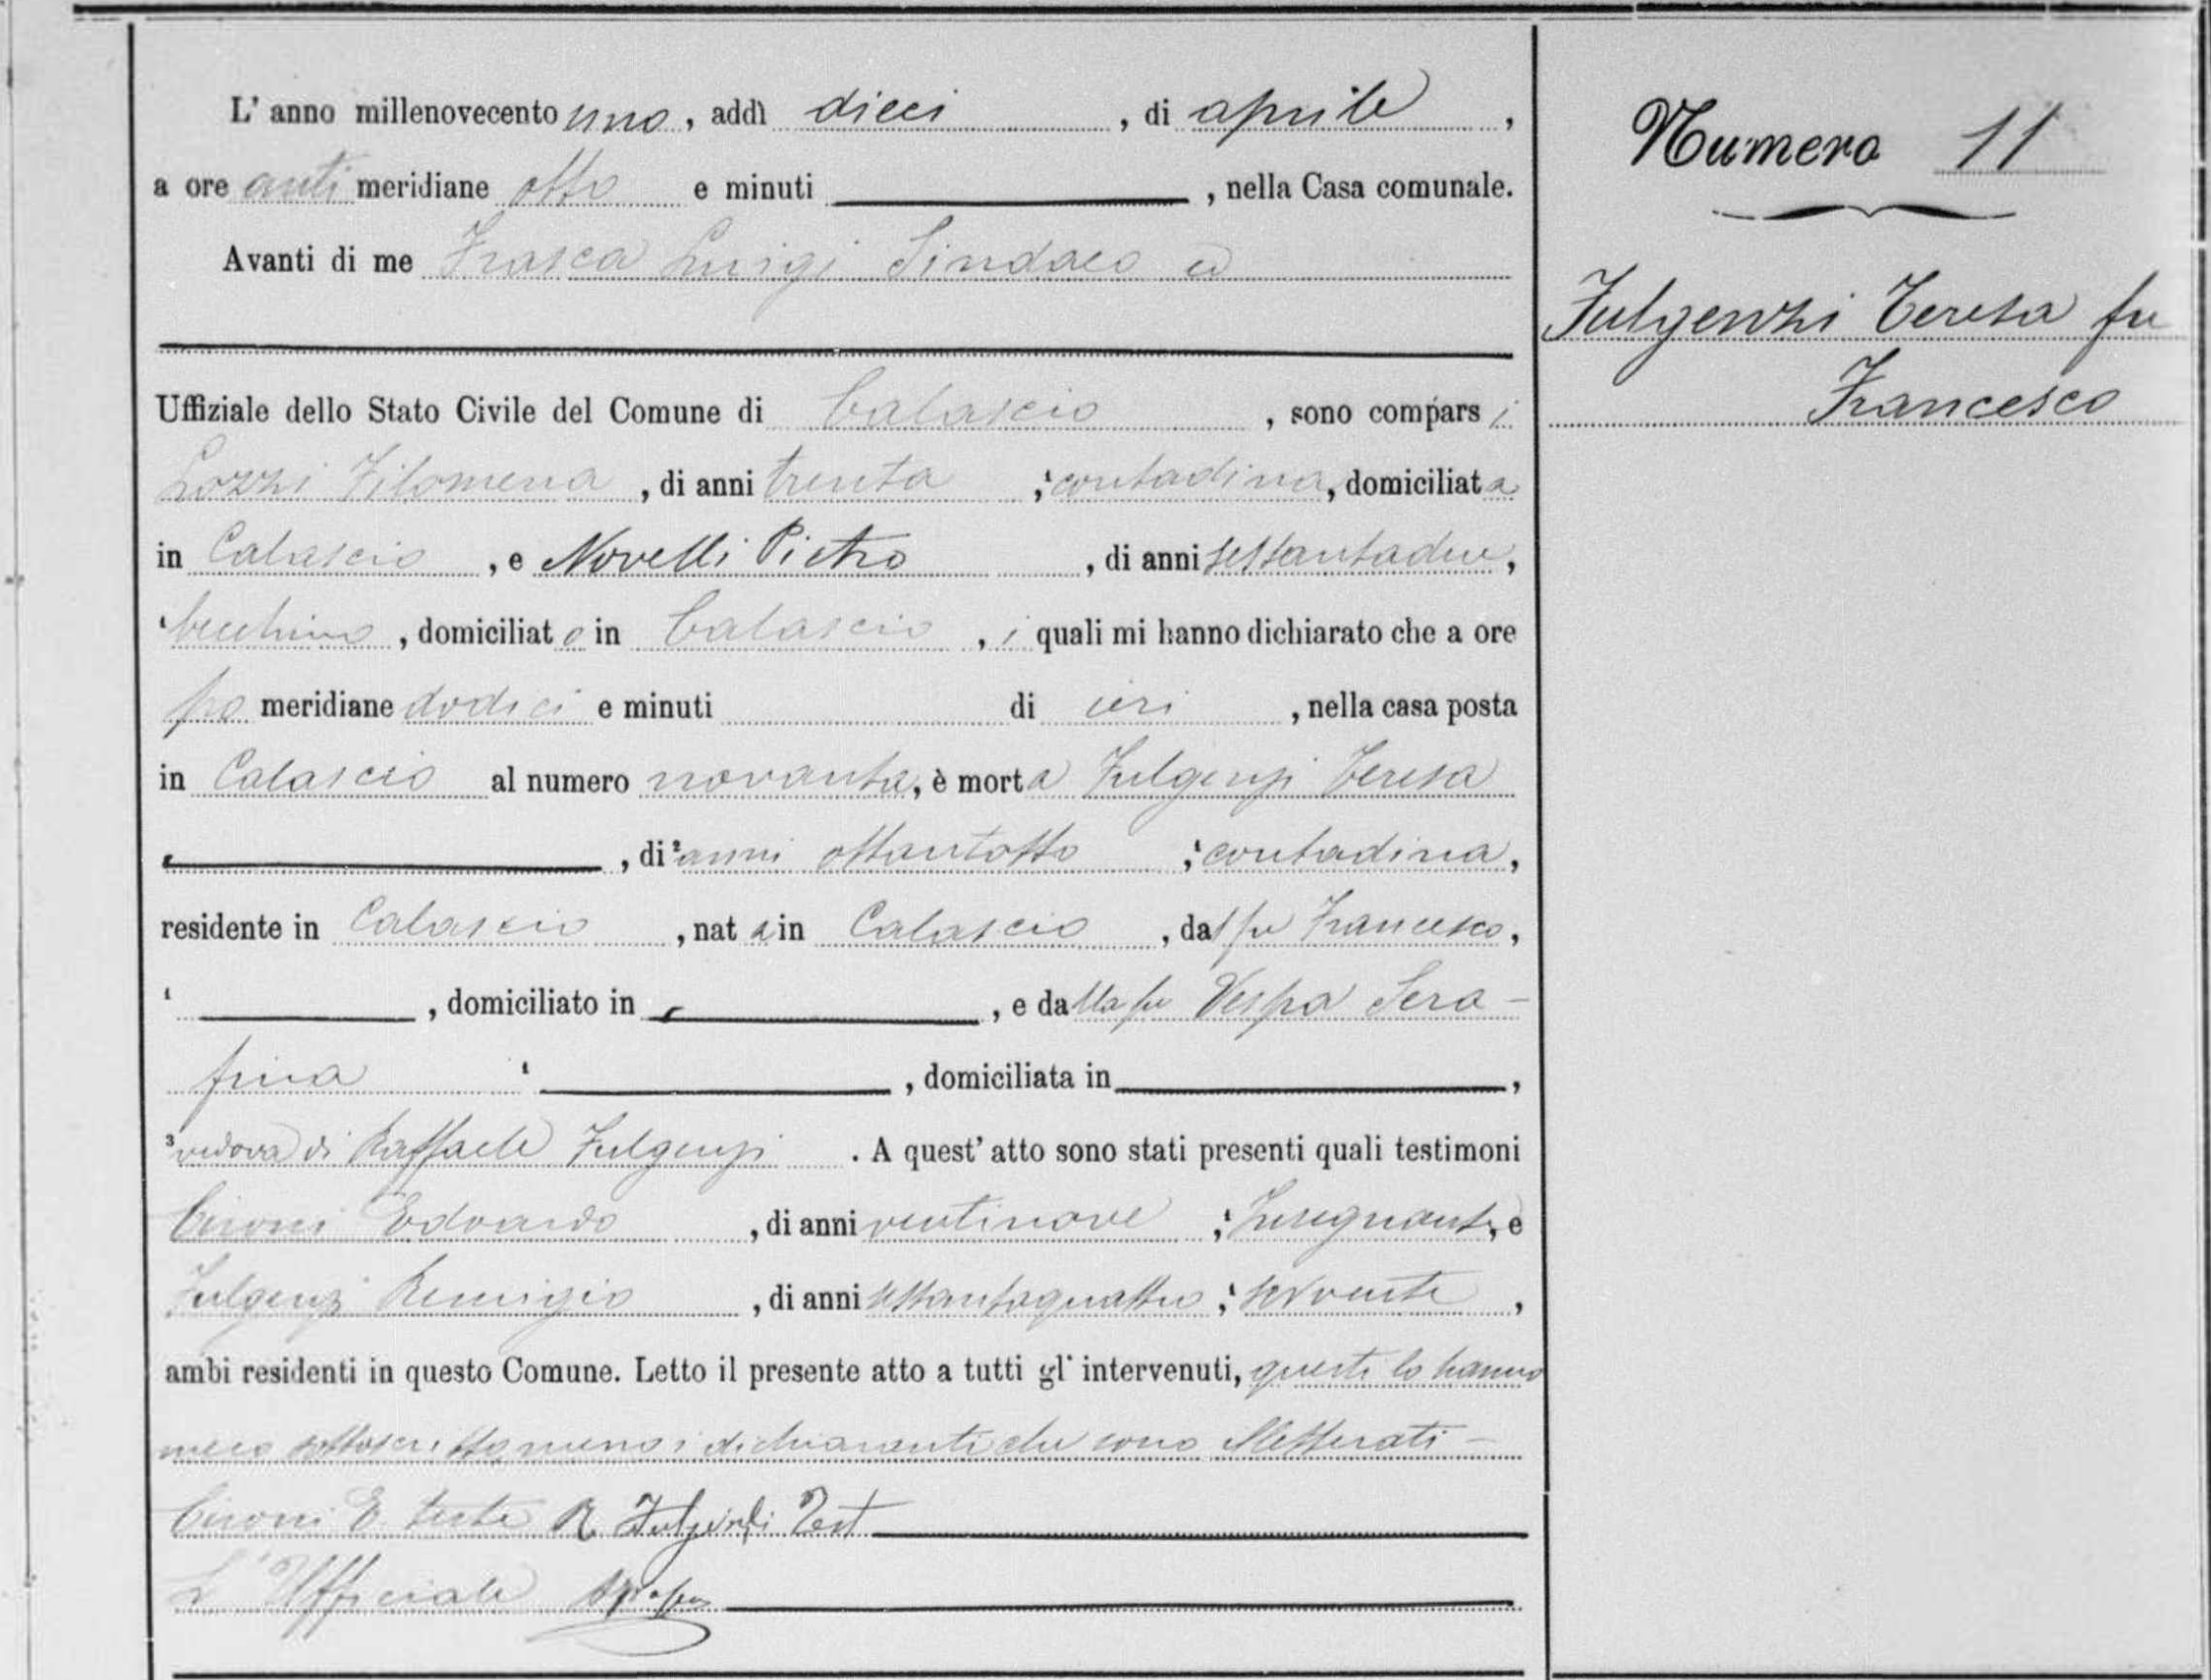 L' anno millenovecento uno, addì dieci, di aprile,
a ore anti meridiane otto e minuti, nella Casa comunale.
Avanti di me Frasca Luigi Sindaco ed
Uffiziale dello Stato Civile del Comune di Calascio, sono compars i
Lozzi Filomena, di anni trenta, contadina, domiciliat a
in Calascio, e Novelli Pietro, di anni sessantadue,
becchino, domiciliat o in Calascio, i quali mi hanno dichiarato che a ore
po meridiane dodici e minuti di ieri, nella casa posta
in Calascio al numero novanta, è mort a Fulgenzi Teresa
, di anni ottantotto, contadina,
residente in Calascio, nat a in Calascio, dal fu Francesco,
, domiciliato in, e dalla fu Vespa Sera-
fina, domiciliata in,
3 vedova di Raffaele Fulgenzi. A quest' atto sono stati presenti quali testimoni
Cironi Edoardo, di anni ventinove, Insegnante, e
Fulgenzi Remigio, di anni settantaquattro, servente,
ambi residenti in questo Comune. Letto il presente atto a tutti gl' intervenuti, questi lo hanno
meco sottoscritto meno i dichiaranti che sono illetterati-
Cironi E. teste R. Fulgenzi Test
L' Ufficiale
Numero 11
Fulgenzi Teresa fu
Francesco